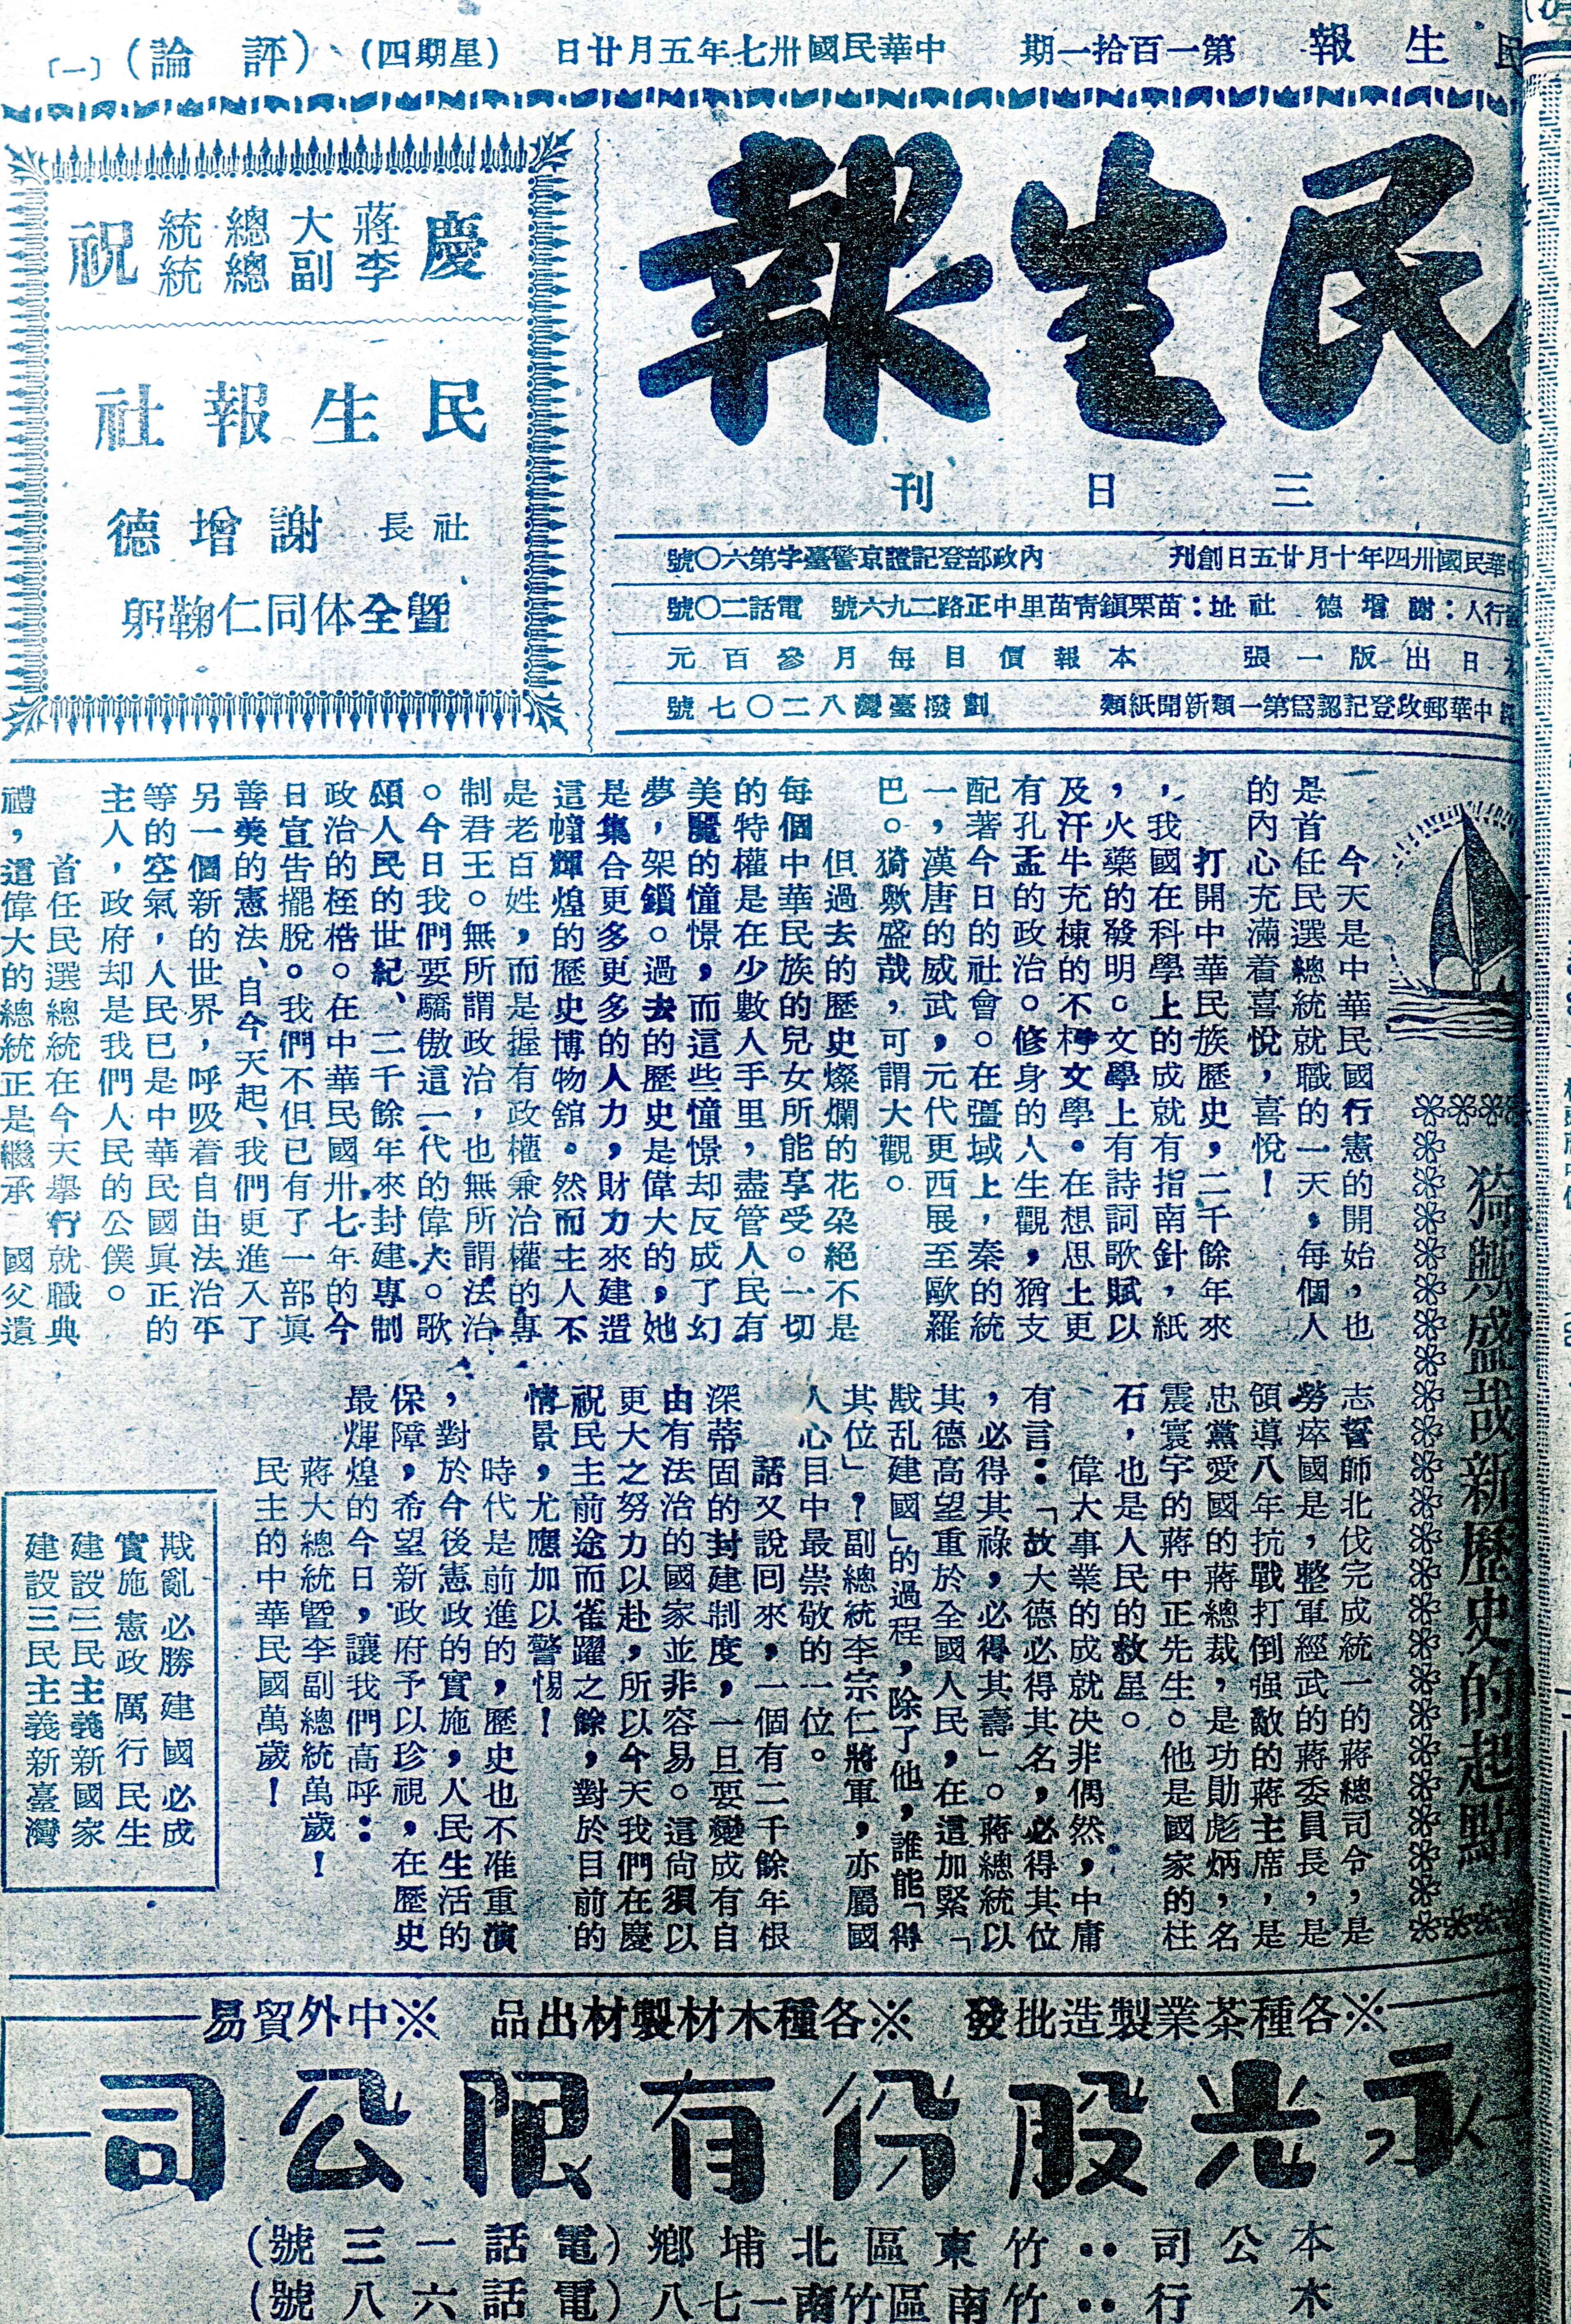 民生報　第一百拾一期　中華民國卅七年五月廿日（星期四）（評論）〔一〕
民生報
三日刊
中華民國卅四年十月廿五日創刊　內政部登記證京警臺字第六〇號
發行人：謝增德　社址：苗栗鎮靑苗里中正路二九六號　電話二〇號
本日出版一張　本報價目每月參百元
中華郵政登記認爲第一類新聞紙類　劃撥臺灣八二〇七號
慶
蔣大總統
李副總統
祝
民生報社
社長　謝增德
暨全体同仁鞠躬
猗歟盛哉新歷史的起點
今天是中華民國行憲的開始，也
是首任民選總統就職的一天，每個人
的內心充滿着喜悅，喜悅！
打開中華民族歷史，二千餘年來
，我國在科學上的成就有指南針，紙
，火藥的發明。文學上有詩詞歌賦以
及汗牛充棟的不朽文學。在想思上更
有孔孟的政治。修身的人生觀，猶支
配著今日的社會。在彊域上，秦的統
一，漢唐的威武，元代更西展至歐羅
巴。猗歟盛哉，可謂大觀。
但過去的歷史燦爛的花朶絕不是
每個中華民族的兒女所能享受。一切
的特權是在少數人手里，盡管人民有
美麗的憧憬，而這些憧憬却反成了幻
夢，架鎖。過去的歷史是偉大的，她
是集合更多更多的人力，財力來建造
這幢輝煌的歷史博物舘。然而主人不
是老百姓，而是握有政權兼治權的專
制君王。無所謂政治，也無所謂法治
。今日我們要驕傲這一代的偉大。歌
頌人民的世紀、二千餘年來封建專制
政治的桎梏。在中華民國卅七年的今
日宣告擺脫。我們不但已有了一部眞
善美的憲法、自今天起、我們更進入了
另一個新的世界，呼吸着自由法治平
等的空氣，人民已是中華民國眞正的
主人，政府却是我們人民的公僕。
首任民選總統在今天舉行就職典
禮，這偉大的總統正是繼承　國父遺
志誓師北伐完成統一的蔣總司令，是
勞瘁國是，整軍經武的蔣委員長，是
領導八年抗戰打倒强敵的蔣主席，是
忠黨愛國的蔣總裁，是功勛彪炳，名
震寰宇的蔣中正先生。他是國家的柱
石，也是人民的救星。
偉大事業的成就決非偶然，中庸
有言：「故大德必得其名，必得其位
，必得其祿，必得其壽」。蔣總統以
其德高望重於全國人民，在這加緊「
戡乱建國」的過程，除了他，誰能「得
其位」？副總統李宗仁將軍，亦屬國
人心目中最崇敬的一位。
話又說回來，一個有二千餘年根
深蒂固的封建制度，一旦要變成有自
由有法治的國家並非容易。這尙須以
更大之努力以赴，所以今天我們在慶
祝民主前途而雀躍之餘，對於目前的
情景，尤應加以警惕！
時代是前進的，歷史也不准重演
，對於今後憲政的實施，人民生活的
保障，希望新政府予以珍視，在歷史
最輝煌的今日，讓我們高呼：
蔣大總統暨李副總統萬歲！
民主的中華民國萬歲！
戡亂必勝建國必成
實施憲政厲行民生
建設三民主義新國家
建設三民主義新臺灣
※各種茶業製造批發　※各種木材製材出品　※中外貿易
永光股份有限公司
本公司：竹東區北埔鄉（電話一三號）
木　行：竹南區竹南一七八（電話六八號）